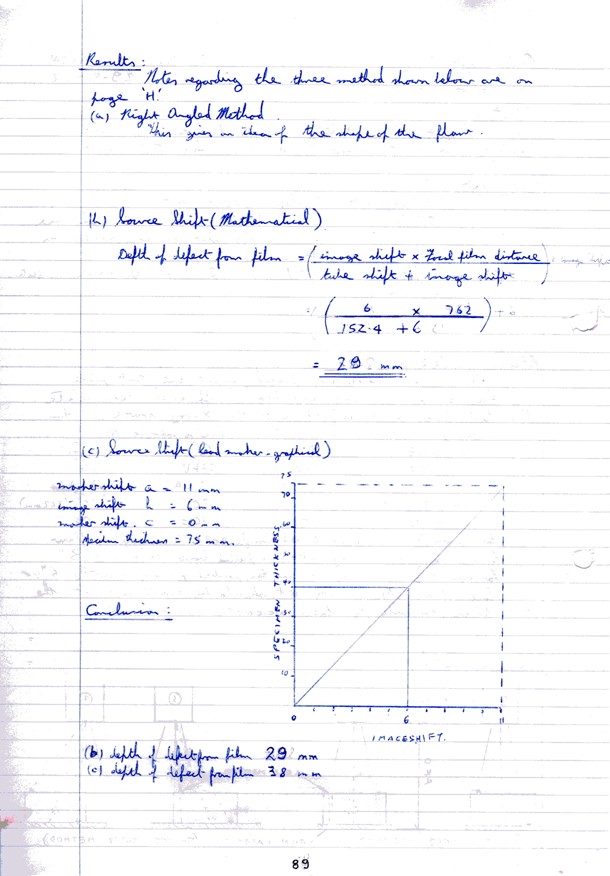 Results :
Notes regarding the three method shown below are on
page 'H'
(a) Right Angled Method
This gives an idea of the shape of the flaw.
(b) Source Shift (Mathematical)
Depth of defect from film = (image shift × Focal film distance
tube shift + image shift)
= (6 × 762
152.4 + 6)
= 29 mm
(c) Source Shift (lead maker - graphical)
marker shift a = 11 mm
image shift b = 6 mm
marker shift. c = 0 mm
specimen thickness = 75 mm.
Conclusion :
75
70
60
50
40
30
20
10
SPECIMEN THICKNESS
0 6 11
IMAGESHIFT.
(b) depth of defect from film 29 mm
(c) depth of defect from film 38 mm
89